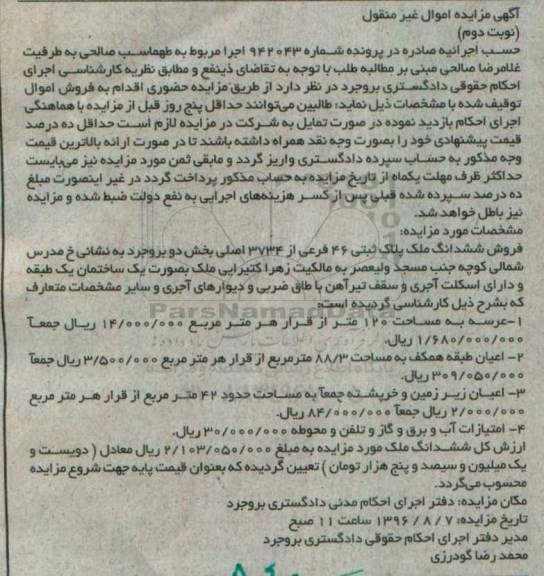 آگهی مزایده اموال غیر منقول
(نوبت دوم)
حسب اجرائیه صادره در پرونده شماره ۹۴۲۰۴۳ اجرا مربوط به طهماسب صالحی به طرفیت
غلامرضا صالحی مبنی بر مطالبه طلب با توجه به تقاضای ذینفع و مطابق نظریه کارشناسی اجرای
احکام حقوقی دادگستری بروجرد در نظر دارد از طریق مزایده حضوری اقدام به فروش اموال
توقیف شده با مشخصات ذیل نماید: طالبین می‌توانند حداقل پنج روز قبل از مزایده با هماهنگی
اجرای احکام بازدید نموده در صورت تمایل به شرکت در مزایده لازم است حداقل ده درصد
قیمت پیشنهادی خود را بصورت وجه نقد همراه داشته باشند تا در صورت ارائه بالاترین قیمت
وجه مذکور به حساب سپرده دادگستری واریز گردد و مابقی ثمن مورد مزایده نیز می‌بایست
حداکثر ظرف مهلت یکماه از تاریخ مزایده به حساب مذکور پرداخت گردد در غیر اینصورت مبلغ
ده درصد سپرده شده قبلی پس از کسر هزینه‌های اجرایی به نفع دولت ضبط شده و مزایده
نیز باطل خواهد شد.
مشخصات مورد مزایده:
فروش ششدانگ ملک پلاک ثبتی ۴۶ فرعی از ۳۷۳۴ اصلی بخش دو بروجرد به نشانی خ مدرس
شمالی کوچه جنب مسجد ولیعصر به مالکیت زهرا کتیرایی ملک بصورت یک ساختمان یک طبقه
و دارای اسکلت آجری و سقف تیرآهن با طاق ضربی و دیوارهای آجری و سایر مشخصات متعارف
که بشرح ذیل کارشناسی گردیده است:
ParsNamadData
۱-عرسه به مساحت ۱۲۰ متر از قرار هر متر مربع ۱۴/۰۰۰/۰۰۰ ریال جمعاً
۱/۶۸۰/۰۰۰/۰۰۰ ریال.
۲- اعیان طبقه همکف به مساحت ۸۸/۳ مترمربع از قرار هر متر مربع ۳/۵۰۰/۰۰۰ ریال جمعاً
۳۰۹/۰۵۰/۰۰۰ ریال.
۳- اعیان زیر زمین و خرپشته جمعاً به مساحت حدود ۴۲ متر مربع از قرار هر متر مربع
۲/۰۰۰/۰۰۰ ریال جمعاً ۸۴/۰۰۰/۰۰۰ ریال.
۴- امتیازات آب و برق و گاز و تلفن و محوطه ۳۰/۰۰۰/۰۰۰ ریال.
ارزش کل ششدانگ ملک مورد مزایده به مبلغ ۲/۱۰۳/۰۵۰/۰۰۰ ریال معادل ( دویست و
یک میلیون و سیصد و پنج هزار تومان ) تعیین گردیده که بعنوان قیمت پایه جهت شروع مزایده
محسوب می‌گردد.
مکان مزایده: دفتر اجرای احکام مدنی دادگستری بروجرد
تاریخ مزایده: ۷ / ۸ / ۱۳۹۶ ساعت ۱۱ صبح
مدیر دفتر اجرای احکام حقوقی دادگستری بروجرد
محمد رضا گودرزی